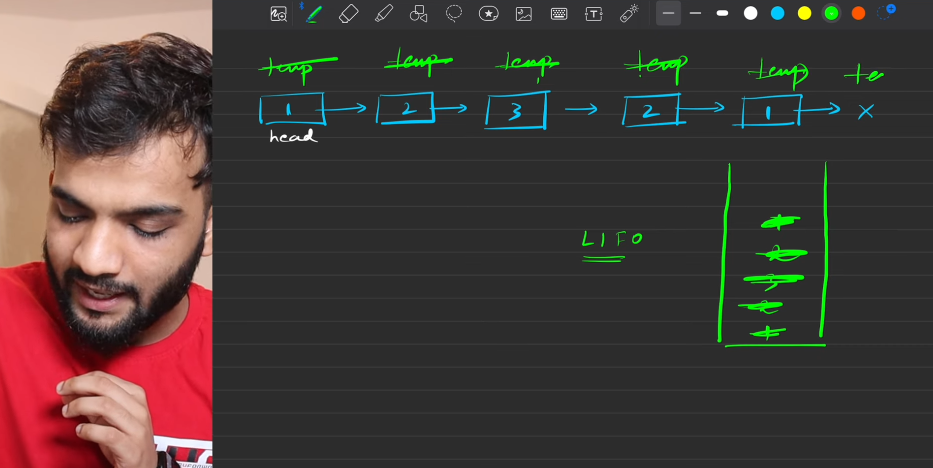 temp temp temp temp temp te
1 2 3 2 1 X
head
LIFO
1
2
3
2
1